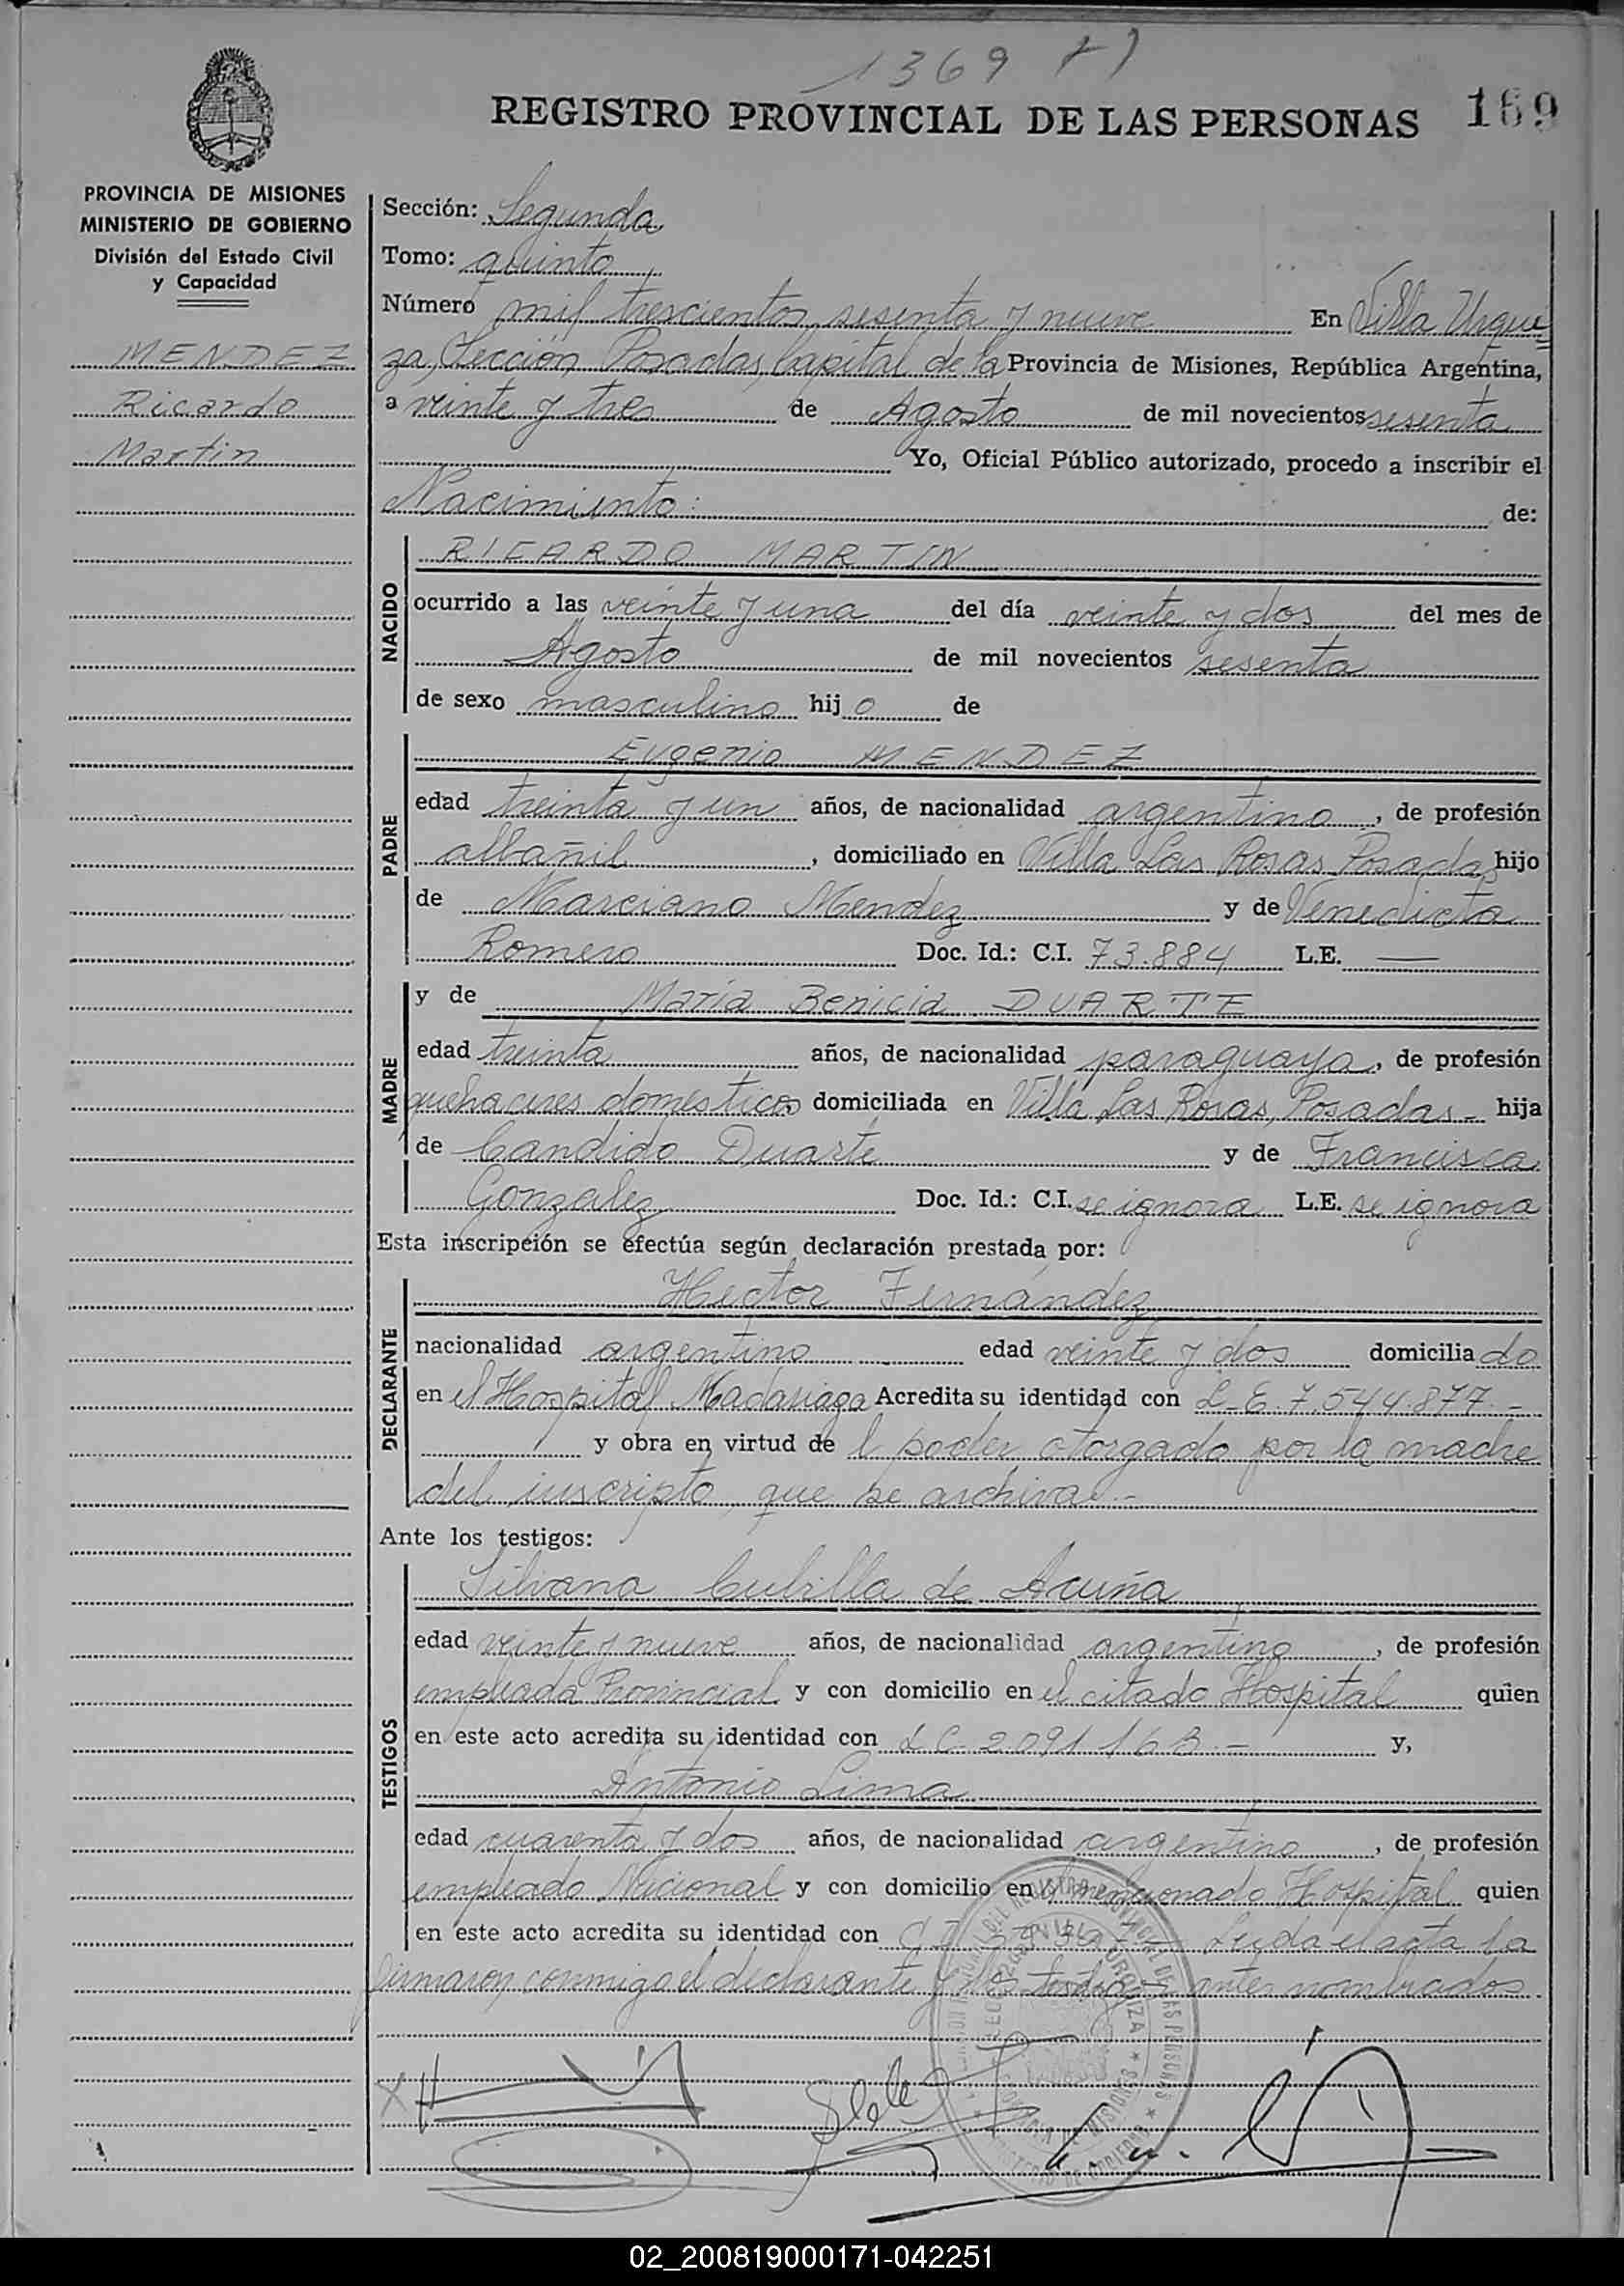 1369
REGISTRO PROVINCIAL DE LAS PERSONAS 169
PROVINCIA DE MISIONES
MINISTERIO DE GOBIERNO
División del Estado Civil
y Capacidad
MENDEZ
Ricardo
Martin
Sección: Segunda
Tomo: quinto
Número mil trescientos sesenta y nueve En Villa Urqui
za, Sección Posadas, Capital de la Provincia de Misiones, República Argentina,
a veinte y tres de Agosto de mil novecientos sesenta
Yo, Oficial Público autorizado, procedo a inscribir el
Nacimiento: de:
NACIDO
RICARDO MARTIN
ocurrido a las veinte y una del día veinte y dos del mes de
Agosto de mil novecientos sesenta
de sexo masculino hijo de
PADRE
Eugenio MENDEZ
edad treinta y un años, de nacionalidad argentino, de profesión
albañil, domiciliado en Villa Las Rosas Posadas hijo
de Marciano Mendez y de Venedicta
Romero Doc. Id.: C.I. 73.884 L.E. —
MADRE
y de María Benicia DUARTE
edad treinta años, de nacionalidad paraguaya, de profesión
quehaceres domesticos domiciliada en Villa Las Rosas, Posadas.- hija
de Candido Duarte y de Francisca
Gonzalez Doc. Id.: C.I. se ignora L.E. se ignora
Esta inscripción se efectúa según declaración prestada por:
DECLARANTE
Hector Fernández
nacionalidad argentino edad veinte y dos domiciliado
en el Hospital Madariaga Acredita su identidad con L.E. 7.544.877.-
y obra en virtud de l poder otorgado por la madre
del inscripto, que se archiva.-
Ante los testigos:
TESTIGOS
Silvana Cubilla de Acuña
edad veinte y nueve años, de nacionalidad argentina, de profesión
empleada Provincial y con domicilio en el citado Hospital quien
en este acto acredita su identidad con LC 2091163.- y,
Antonio Lima
edad cuarenta y dos años, de nacionalidad argentino, de profesión
empleado Nacional y con domicilio en el mencionado Hospital quien
en este acto acredita su identidad con Leyda el acta la
firmaron conmigo el declarante y los testigos antes nombrados.
02_200819000171-042251